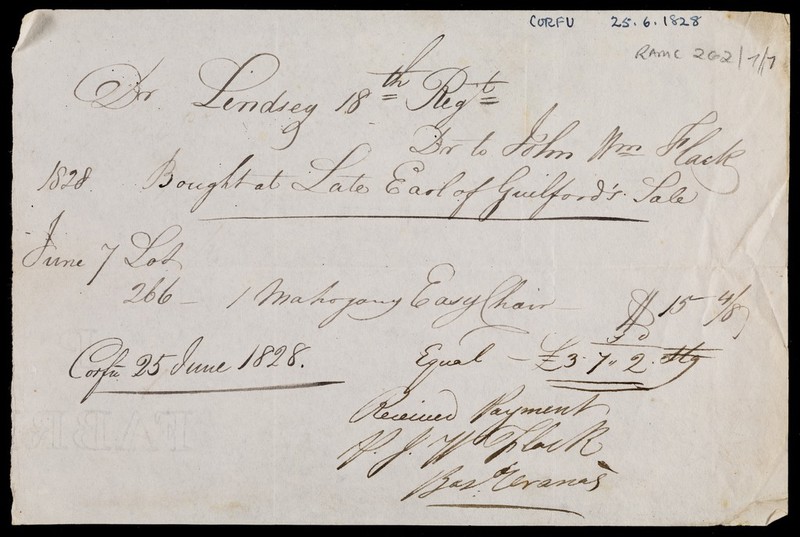 CORFU 25.6.1828
RAMC 262/1/1
Dr Lindsey 18th Regt
Dr to John Wm Flack
1828. Bought at Late Earl of Guilford's Sale
June 7 Lot
266 - 1 Mahogany Easy Chair - $ 15 4/8
Corfu 25 June 1828.
Equal - £3. 7. 2. Stg
Received Payment
J W Flack
FABRI